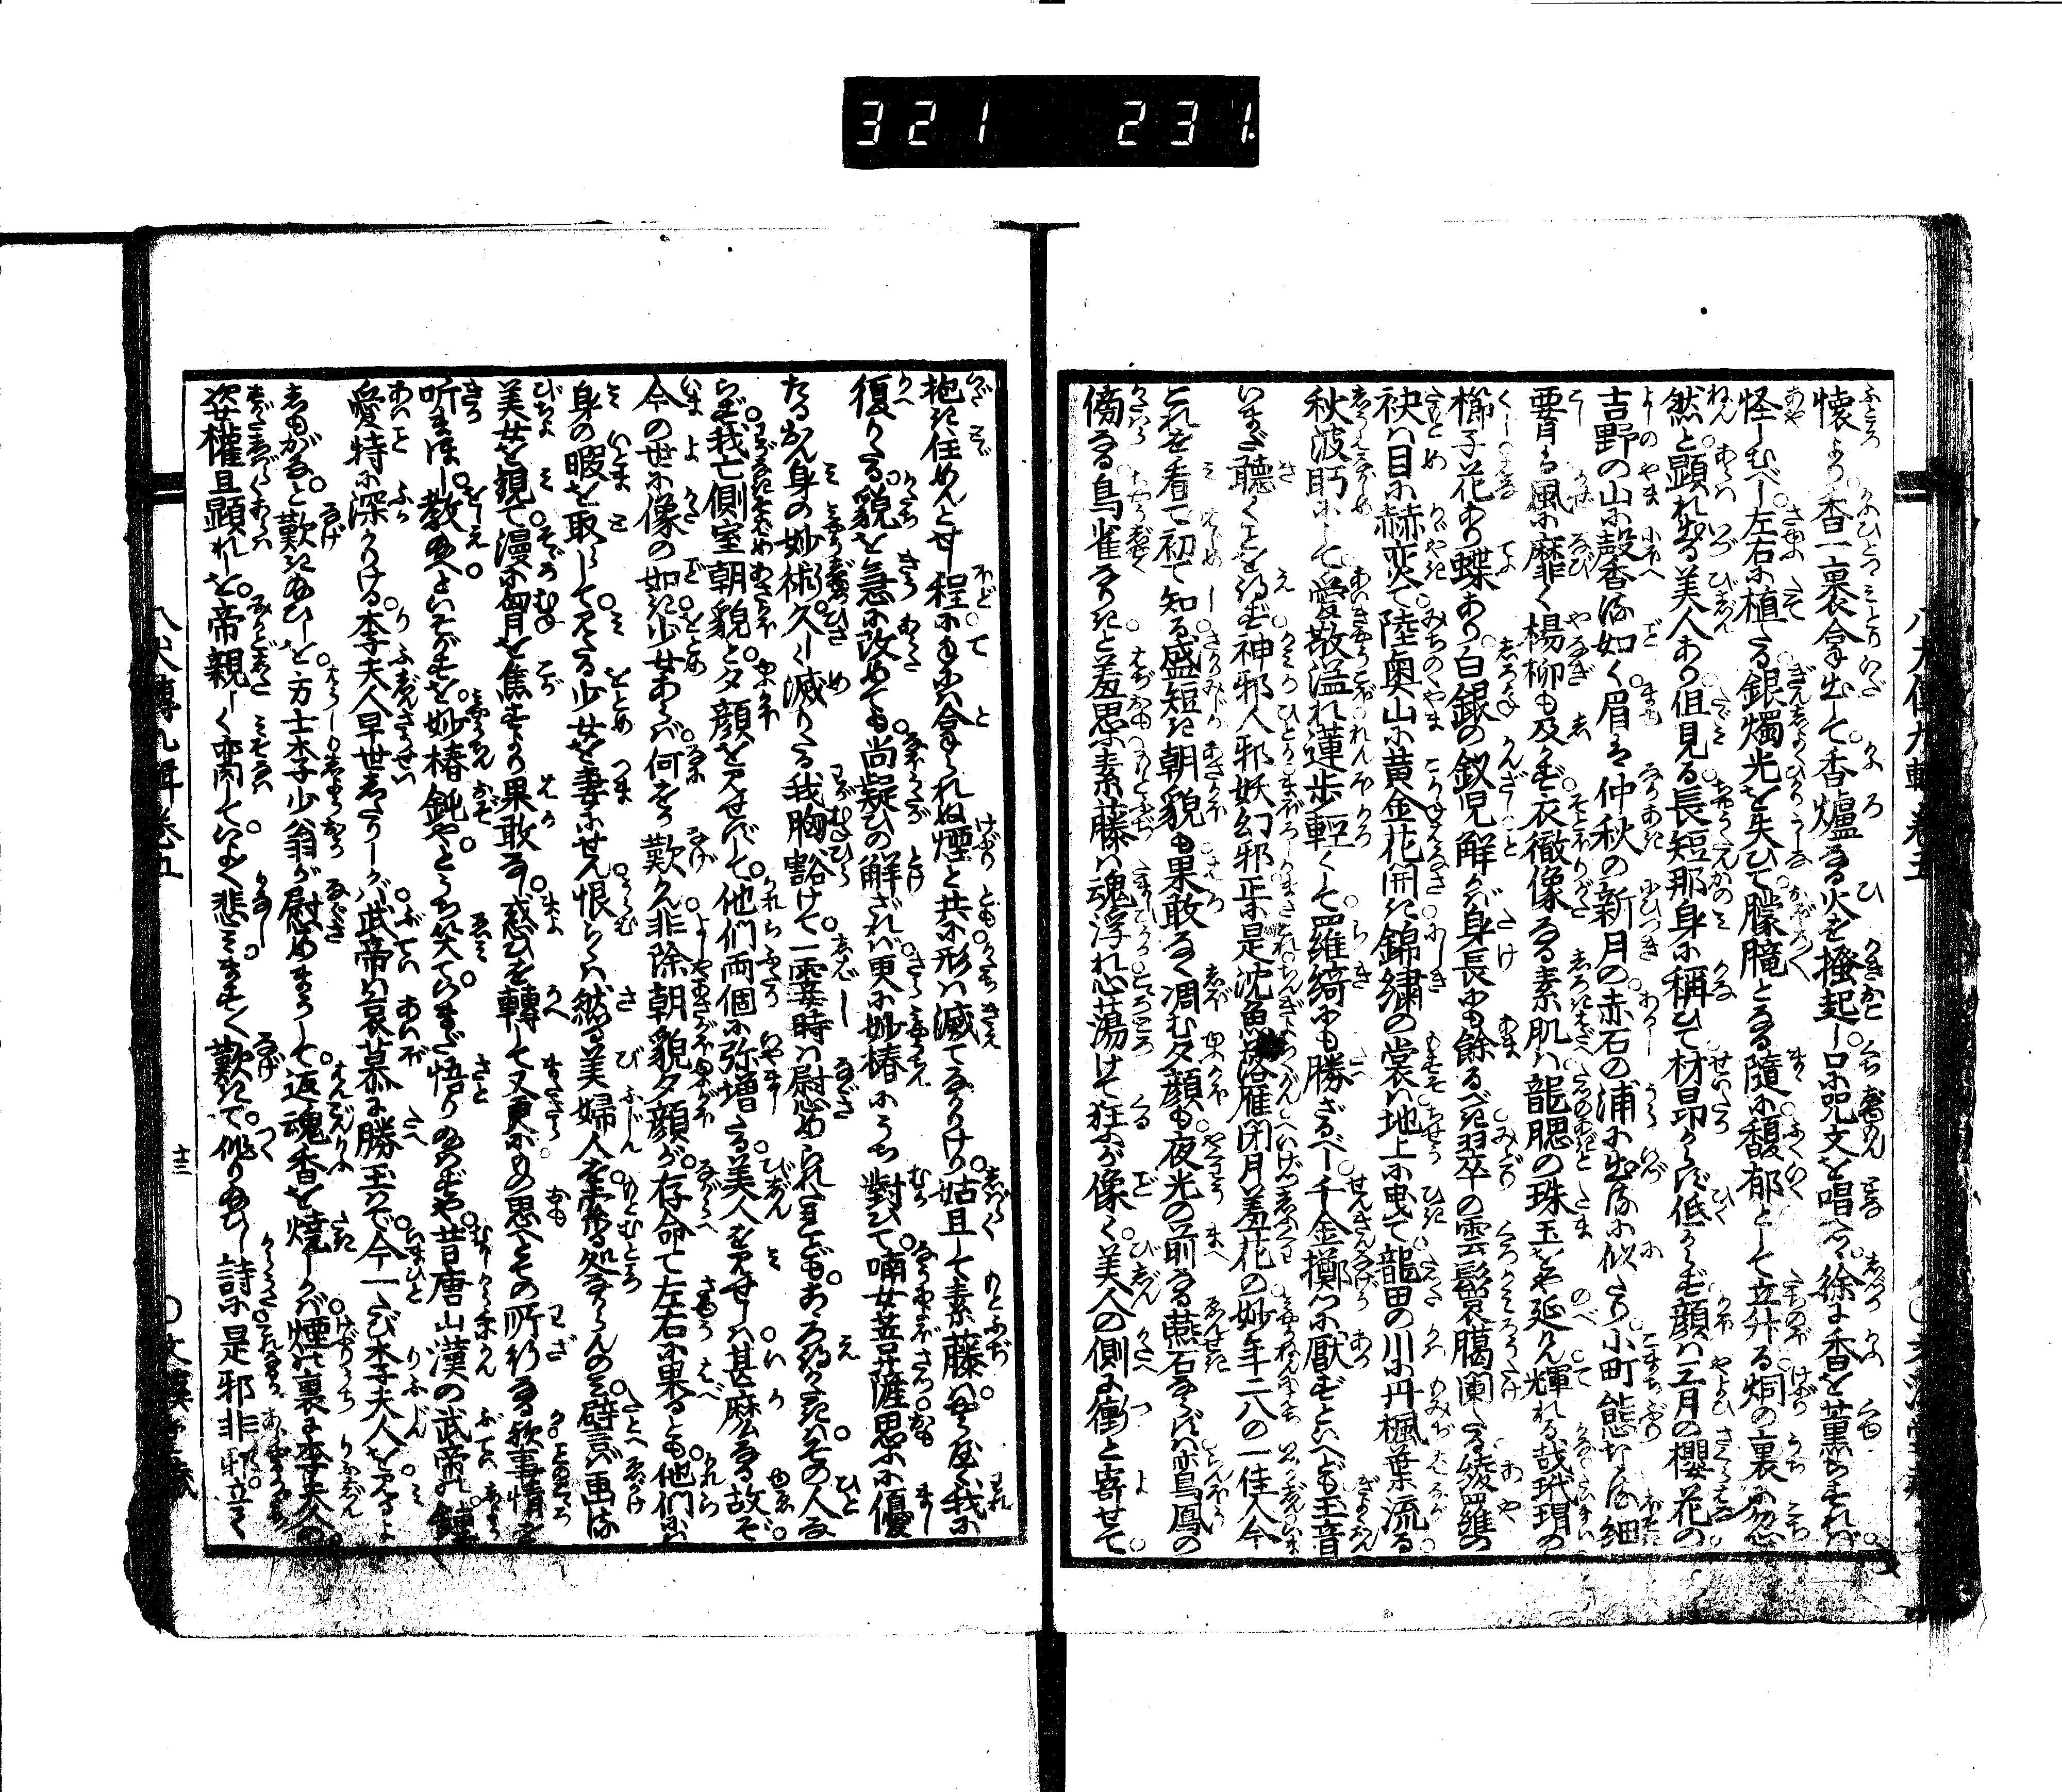 321 231
懐より香一裹合拿出して香爐なる火を掻起し口に呪文を唱へつゝ徐に香を薫らすれば
怪しむべし左右に植たる銀燭光を失ひて朦朧となる隨に馥郁として立升る烟の裏に忽
然と顕れ出る美人あり但見る長短那身に稱ひて材昂からず低からず顔は三月の櫻花の
吉野の山に馨香る如く眉は仲秋の新月の赤石の浦に出るに似たり小町態なる細
要は風に靡く楊柳も及ばず衣徹像なる素肌は龍腮の珠玉をや延けん輝れる哉玳瑁の
櫛子花あり蝶あり白銀の釵児解かば身長にも餘るべき翠の雲鬟臈闌たる綾羅の
袂は目に赫奕て陸奥山に黄金花開き錦繍の裳は地上に曳て龍田の川に丹楓葉流る
秋波眄にして愛敬溢れ蓮歩輕くして羅綺にも勝ざるべし千金擲つに厭ずといへども玉音
いまだ聴くことを得ず神邪人邪妖幻邪正に是沈魚落雁閉月羞花の妙年二八の一佳人今
これを看て初て知る盛短き朝貌も果敢なく凋む夕顔も夜光の前なる燕石ならずは鸞鳳の
傍なる鳥雀なりきと羞思ふ素藤は魂浮れ心蕩けて狂ふが像く美人の側に衝と寄せて
抱き住めんとせし程に手にも合拿られぬ煙と共に形は滅てなかりけり姑且して素藤は故の座に我に
復りたる貌を急に改めても尚疑ひの解ざれば更に妙椿にうち對ひて喃女菩薩思ふに優
たるおん身の妙術久しく滅りたる我胸豁けて一霎時は慰められしかどもあろ得ぬはその人な
らず我亡側室朝貌と夕顔を見せずして他們両個に弥増たる美人を見せしは甚麼なる故ぞ
今の世に像の如き少女あらば何をか歎かん非除朝貌夕顔が存命て左右に果るとも他們に
身の暇を取らして見たる少女を妻にせん恨らくは然る美婦人を索る処なからんのみ譬ば画る
美女を覩て漫に胸を焦すより果敢なき惑ひを轉して又更にもの思へとその所行なる歟事情を
听まほし教給へといそがすを妙椿鈍やとうち笑てらまだ悟り給はずや昔唐山漢の武帝の鍾
愛特に深かりける李夫人早世したりしが武帝は哀慕に勝玉はで今一たび李夫人を見るよ
しもがなと歎き給ひしを方士李少翁が慰めまうして返魂香を焼しかば煙の裏に李夫人の
姿權且顕れしを帝親しく御覧していよゝ悲みますく歎きて作り給ひし詩に是邪非邪立て
八犬傳九輯卷五
十三
八犬傳九輯卷五